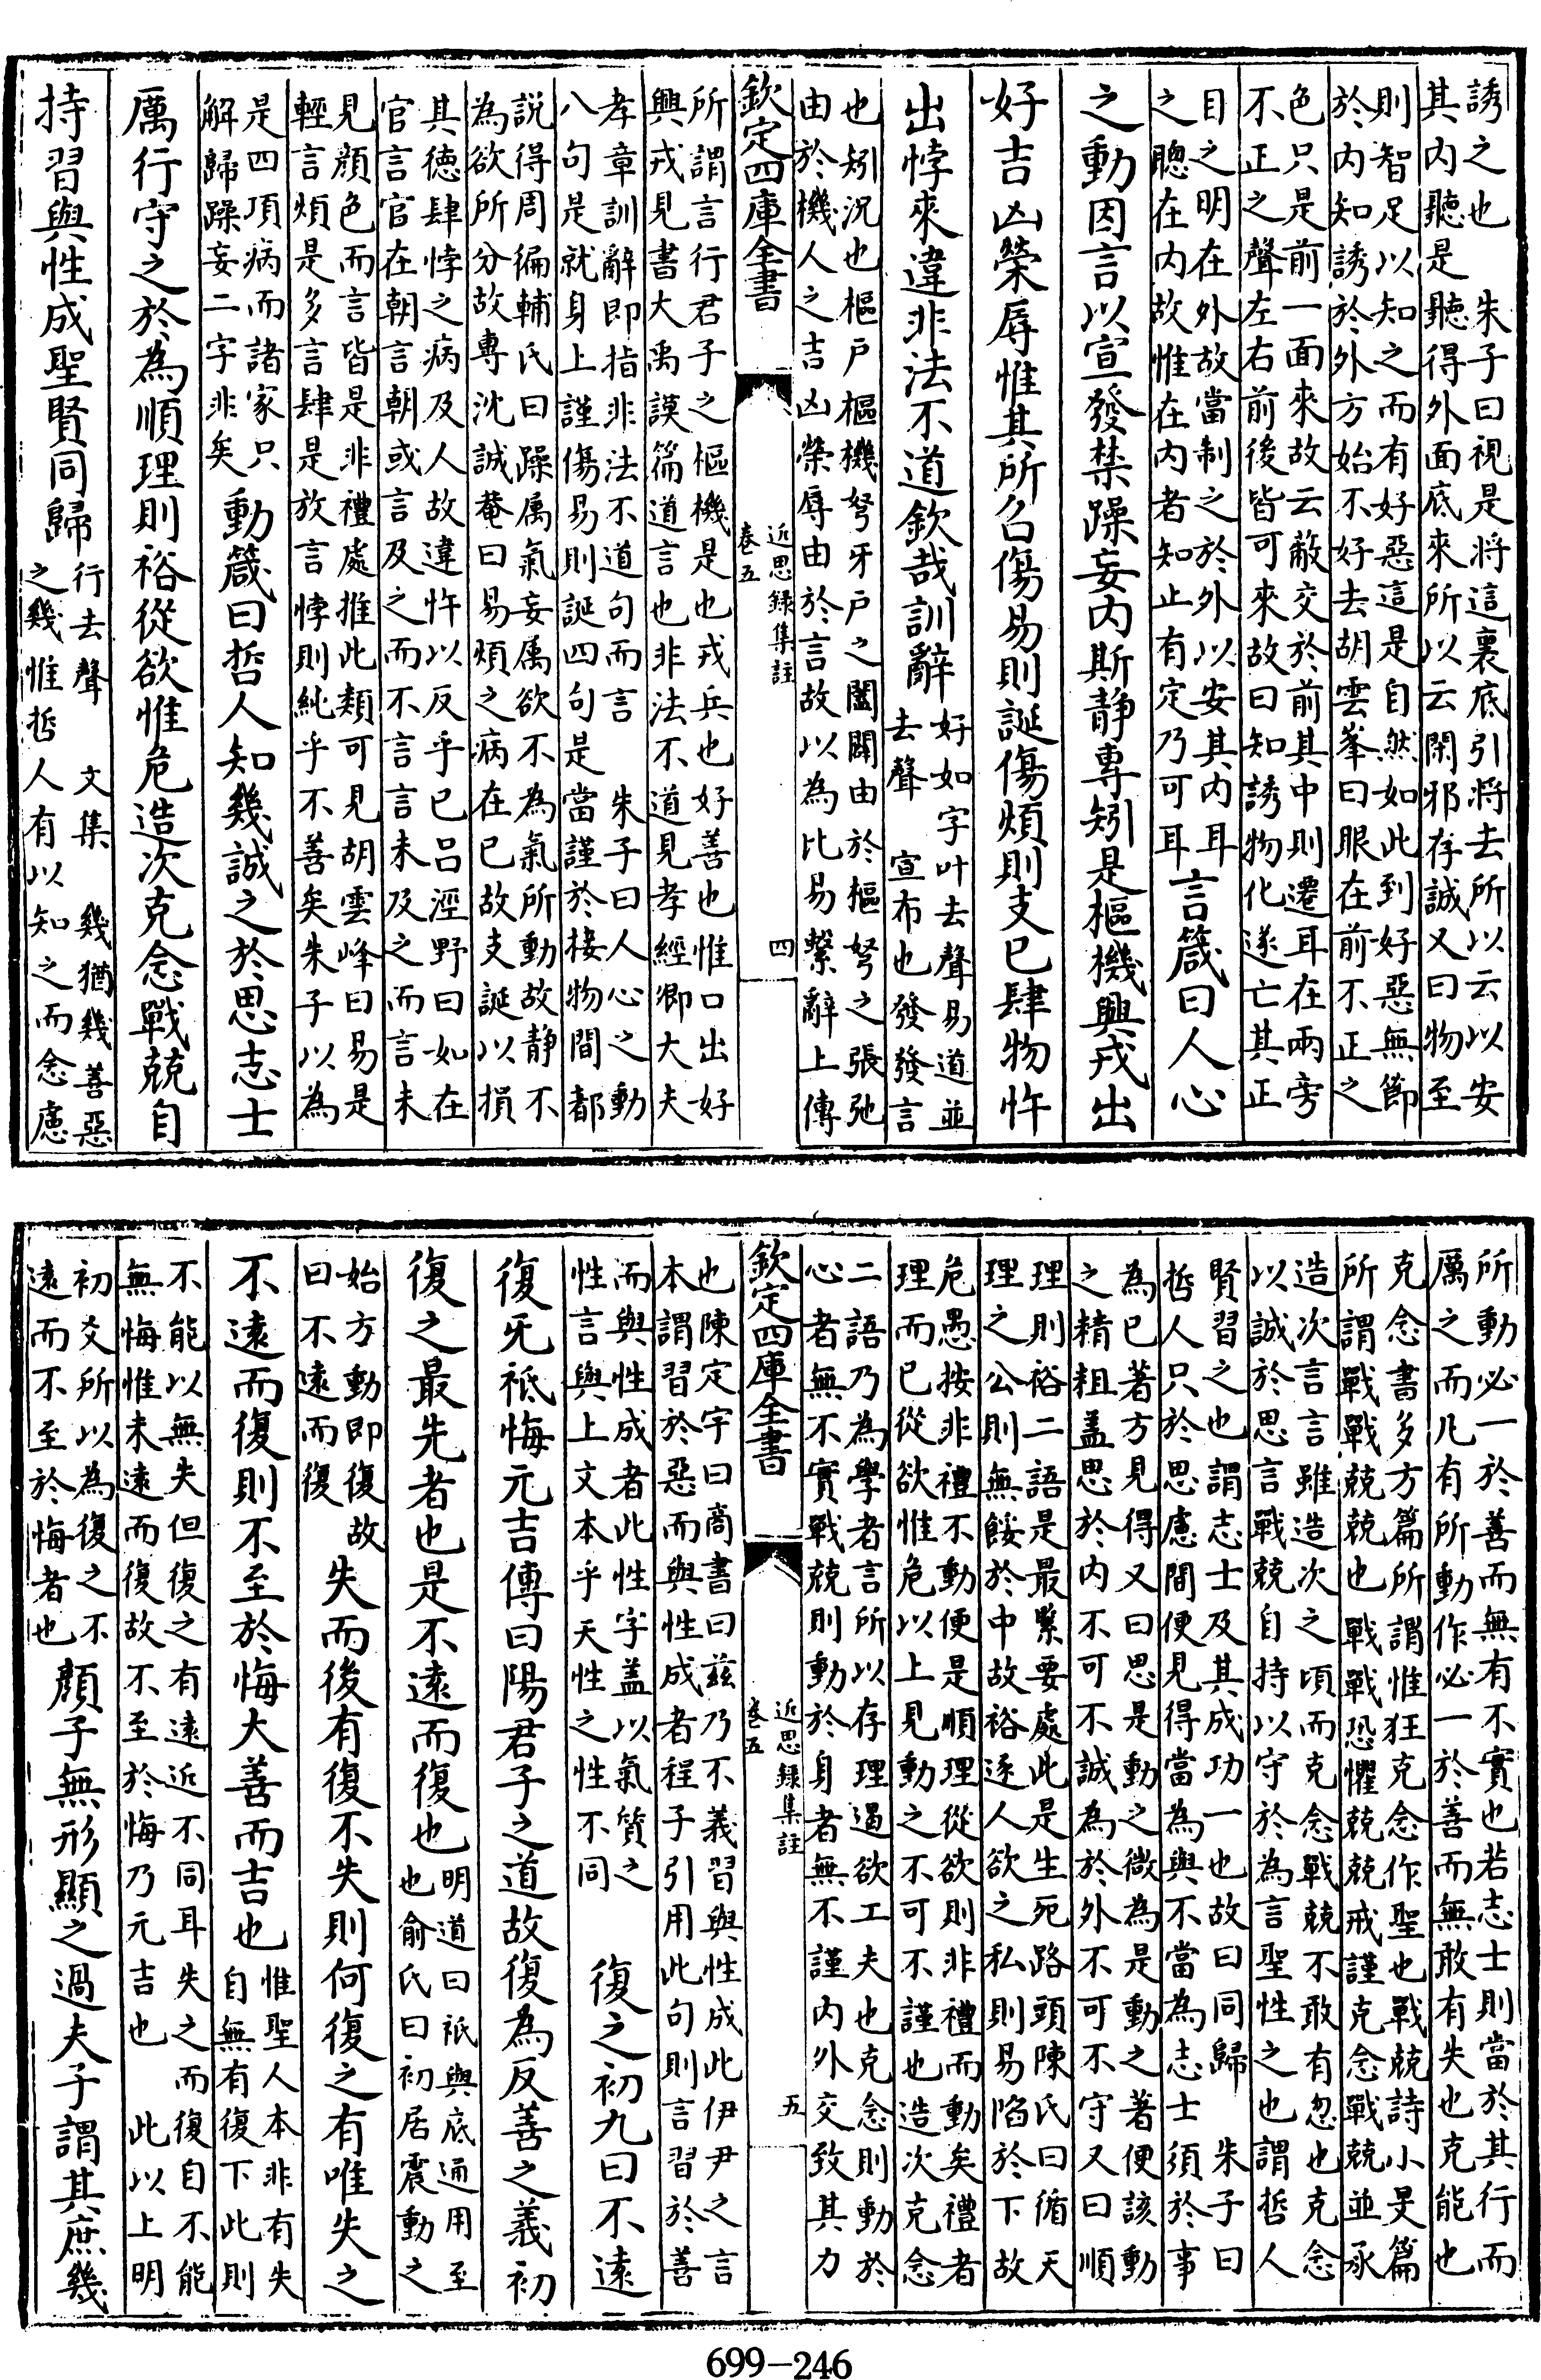 誘之也　朱子曰視是將這裏底引將去所以云以安
其内聽是聽得外面底來所以云閑邪存誠又曰物至
則智足以知之而有好惡這是自然如此到好惡無節
於内知誘於外方始不好去胡雲峯曰眼在前不正之
色只是前一面來故云蔽交於前其中則遷耳在兩旁
不正之聲左右前後皆可來故曰知誘物化遂亡其正
目之明在外故當制之於外以安其内耳
之聰在内故惟在内者知止有定乃可耳
言箴曰人心
之動因言以宣發禁躁妄内斯静專矧是樞機興戎出
好吉凶榮辱惟其所召傷易則誕傷煩則支已肆物忤
出悖來違非法不道欽哉訓辭
好如字叶去聲易道並
去聲　宣布也發發言
也矧況也樞戸樞機弩牙戸之闔闢由於樞弩之張弛
由於機人之吉凶榮辱由於言故以為比易繫辭上傳
欽定四庫全書
近思録集註
卷五
四
所謂言行君子之樞機是也戎兵也好善也惟口出好
興戎見書大禹謨篇道言也非法不道見孝經卿大夫
孝章訓辭即指非法不道句而言　朱子曰人心之動
八句是就身上謹傷易則誕四句是當謹於接物間都
說得周徧輔氏曰躁属氣妄属欲不為氣所動故静不
為欲所分故專沈誠菴曰易煩之病在已故支誕以損
其徳肆悖之病及人故違忤以反乎已吕涇野曰如在
官言官在朝言朝或言及之而不言言未及之而言未
見顔色而言皆是非禮處推此類可見胡雲峰曰易是
輕言煩是多言肆是放言悖則純乎不善矣朱子以為
是四項病而諸家只
解歸躁妄二字非矣
動箴曰哲人知幾誠之於思志士
厲行守之於為順理則裕從欲惟危造次克念戰兢自
持習與性成聖賢同歸
行去聲　文集　幾猶幾善惡
之幾惟哲人有以知之而念慮
所動必一於善而無有不實也若志士則當於其行而
厲之而凡有所動作必一於善而無敢有失也克能也
克念書多方篇所謂惟狂克念作聖也戰兢詩小旻篇
所謂戰戰兢兢也戰戰恐懼兢兢戒謹克念戰兢並承
造次言言雖造次之頃而克念戰兢不敢有忽也克念
以誠於思言戰兢自持以守於為言聖性之也謂哲人
賢習之也謂志士及其成功一也故曰同歸　朱子曰
哲人只於思慮間便見得當為與不當為志士須於事
為已著方見得又曰思是動之微為是動之著便該動
之精粗盖思於内不可不誠為於外不可不守又曰順
理則裕二語是最緊要處此是生死路頭陳氏曰循天
理之公則無餒於中故裕逐人欲之私則易陷於下故
危愚按非禮不動便是順理從欲則非禮而動矣禮者
理而已從欲惟危以上見動之不可不謹也造次克念
二語乃為學者言所以存理遏欲工夫也克念則動於
心者無不實戰兢則動於身者無不謹内外交致其力
欽定四庫全書
近思録集註
卷五
五
也陳定宇曰商書曰兹乃不義習與性成此伊尹之言
本謂習於惡而與性成者程子引用此句則言習於善
而與性成者此性字盖以氣質之
性言與上文本乎天性之性不同
復之初九曰不遠
復旡祗悔元吉傳曰陽君子之道故復為反善之義初
復之最先者也是不遠而復也
明道曰祗與底通用至
也俞氏曰初居震動之
始方動即復故
曰不遠而復
失而後有復不失則何復之有唯失之
不遠而復則不至於悔大善而吉也
惟聖人本非有失
自無有復下此則
不能以無失但復之有遠近不同耳失之而復自不能
無悔惟未遠而復故不至於悔乃元吉也　此以上明
初爻所以為復之不
遠而不至於悔者也
顔子無形顯之過夫子謂其庶幾
699-246